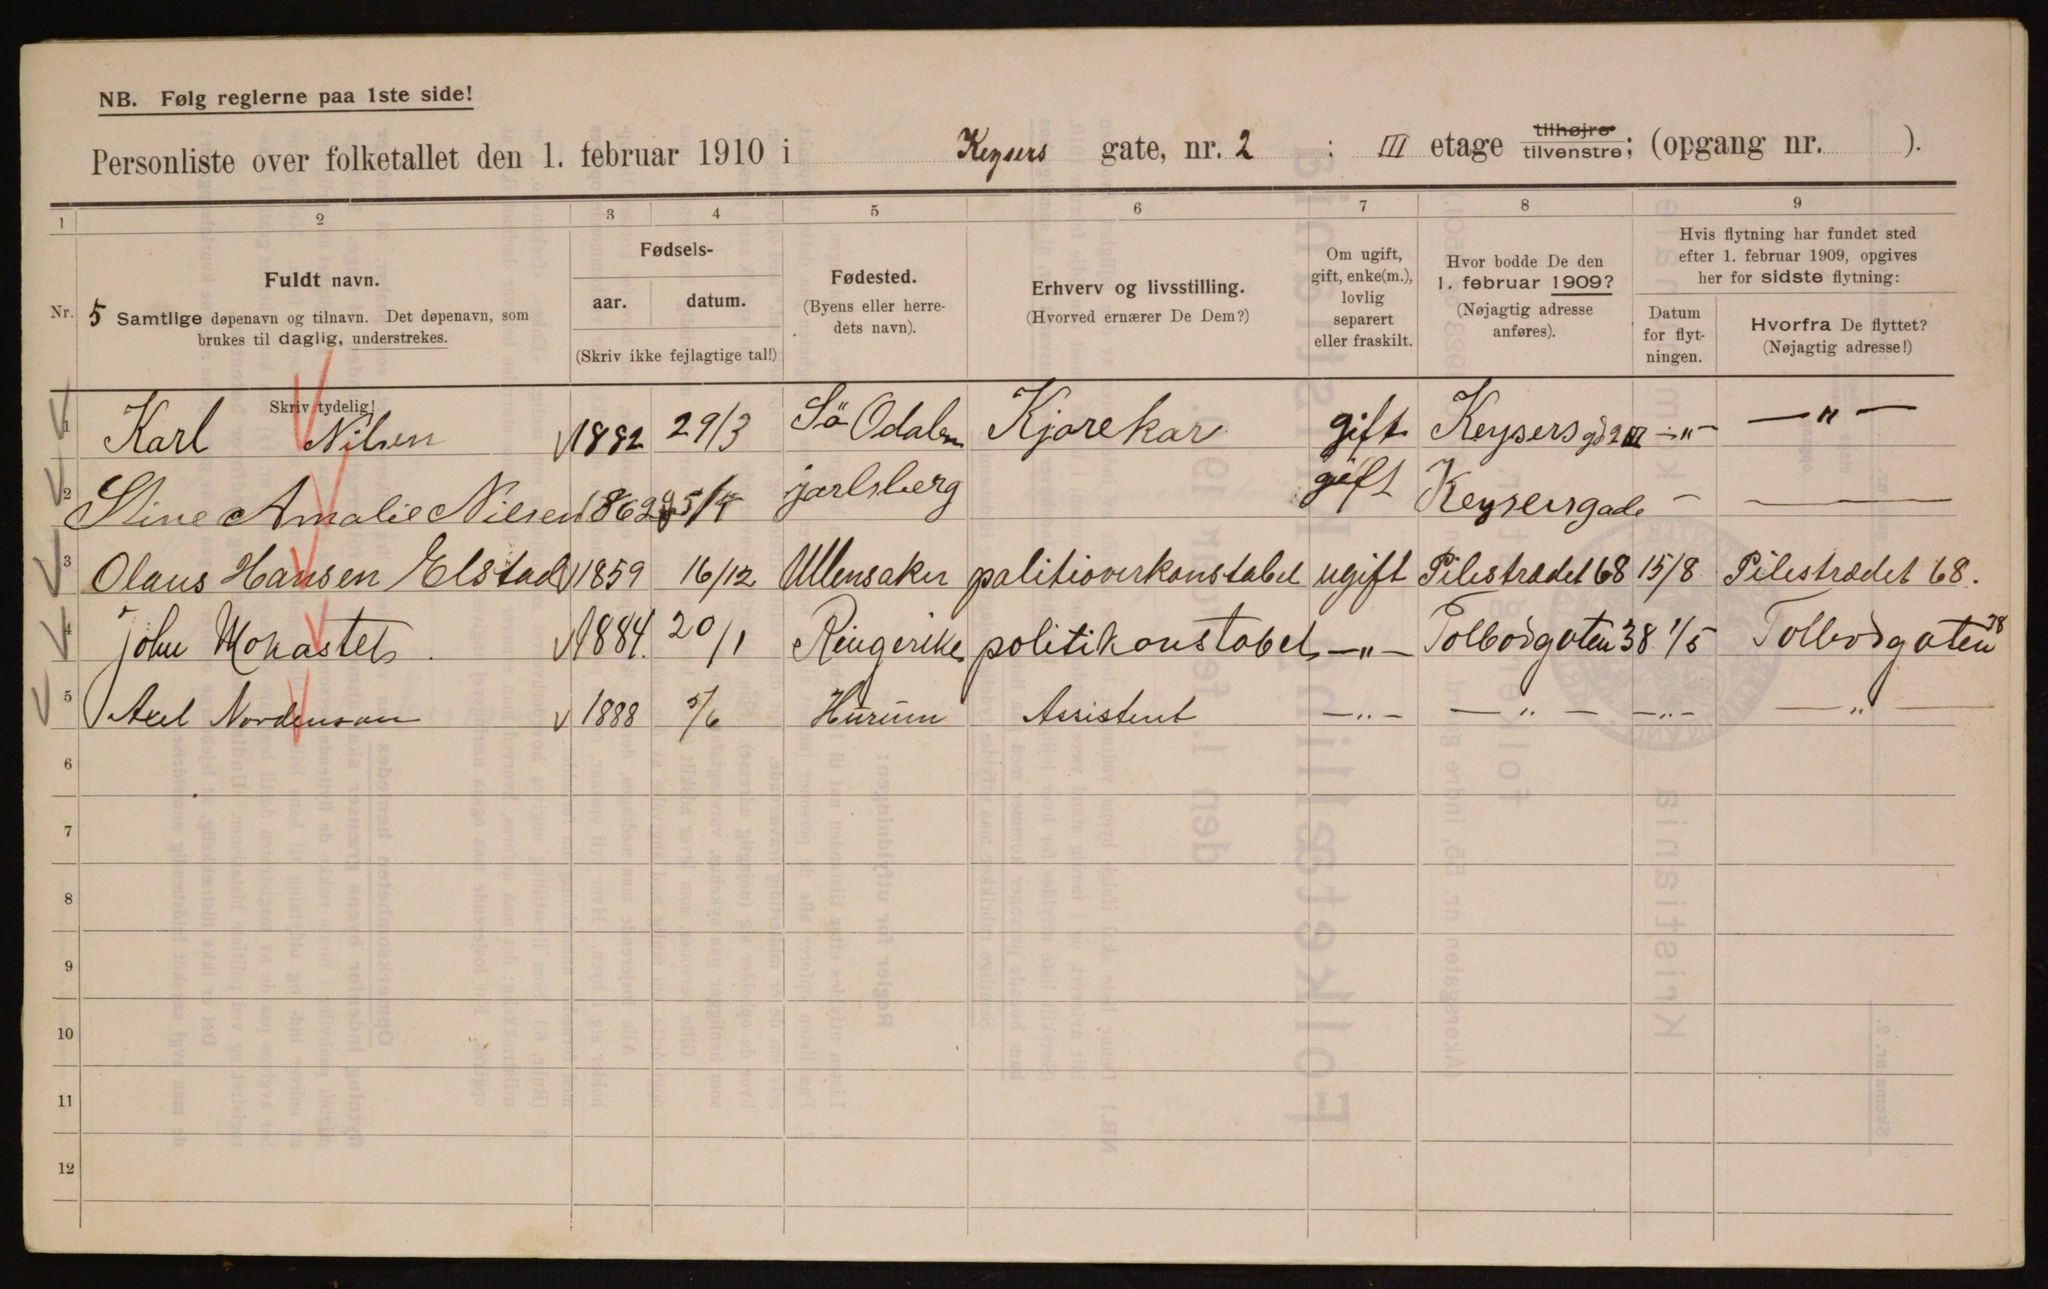 NB. Følg reglerne paa 1ste side!
Personliste over folketallet den 1. februar 1910 i Keysers gate, nr. 2 : III etage tilhøjre tilvenstre; (opgang nr. ).
1 2 3 4 5 6 7 8 9
Nr. 5
Fuldt navn.
Samtlige døpenavn og tilnavn. Det døpenavn, som
brukes til daglig, understrekes.
Skriv tydelig!
Fødsels-
aar. datum.
(Skriv ikke fejlagtige tal!)
Fødested.
(Byens eller herre-
dets navn).
Erhverv og livsstilling.
(Hvorved ernærer De Dem?)
Om ugift,
gift, enke(m.),
lovlig
separert
eller fraskilt.
Hvor bodde De den
1. februar 1909?
(Nøjagtig adresse
anføres).
Hvis flytning har fundet sted
efter 1. februar 1909, opgives
her for sidste flytning:
Datum
for flyt-
ningen.
Hvorfra De flyttet?
(Nøjagtig adresse!)
1 Karl Nilsen 1882 29/3 Sö Odalen Kjørekar gift Keysers gd 2 III —„— —„—
2 Stine Amalie Nilsen 1862 jarlsberg gift Keysersgade — —
3 Olaus Hansen Elstad 1859 16/12 Ullensaker politioverkonstabel ugift Pilestrædet 68 15/8 Pilestrædet 68.
4 John Mokastet 1884. 20/1 Ringerike politikonstabel —„— Tolbodgaten 38 1/5 Tolbodgaten 38
5 Axel Nordenson 1888 5/6 Hurum Assistent —„— —„— —„— —„—
6
7
8
9
10
11
12